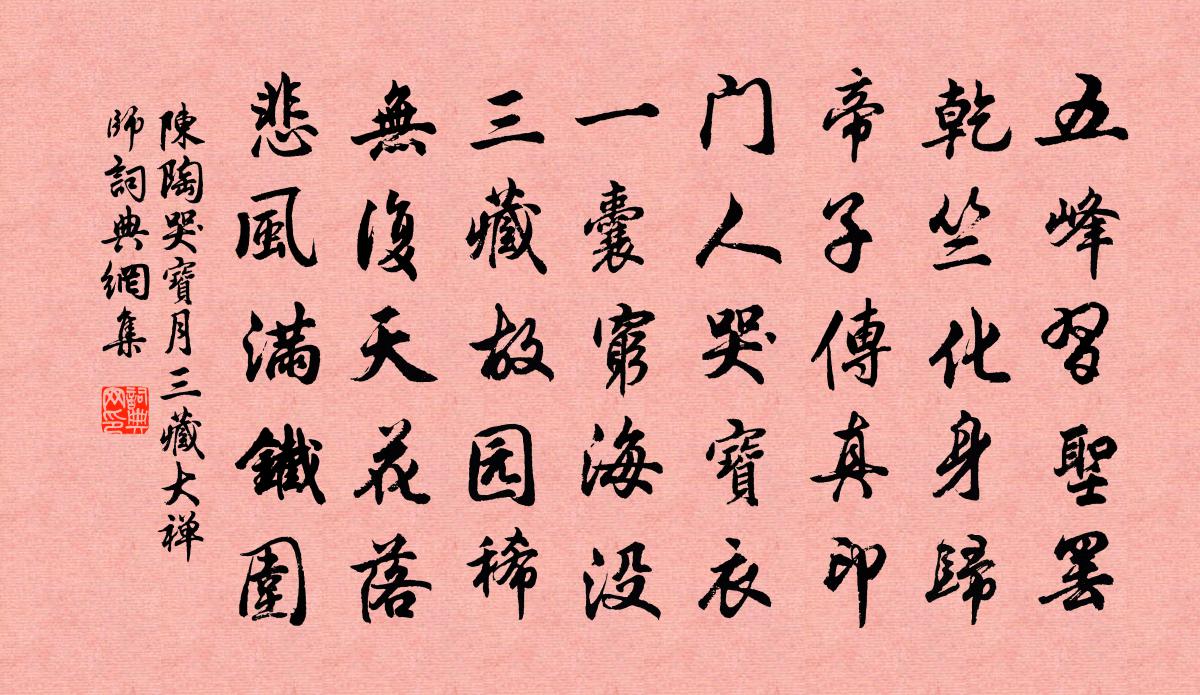 五峰習聖罢
乾竺化身歸
帝子傳真印
门人哭寶衣
一囊窮海没
三藏故园稀
無復天花落
悲風滿鐵圍
陳陶哭寶月三藏大禅
師詞典網集
詞典
网印